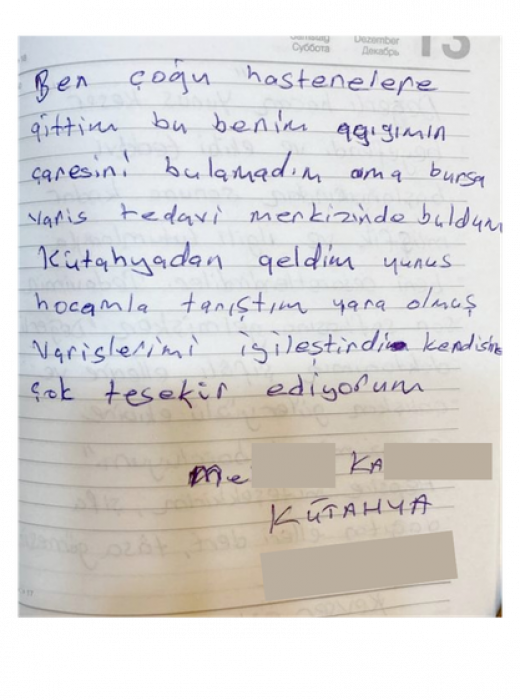 Суббота
Dezember
Декабрь
13
Ben çoğu hastenelere
gittim bu benim
çaresini bulamadım ama bursa
varis tedavi merkizinde buldum
Kütahyadan geldim yunus
hocamla tanıştım yara olmuş
varislerimi iyileştirdi kendisine
çok teşekir ediyorum
Me KA
KÜTAHYA